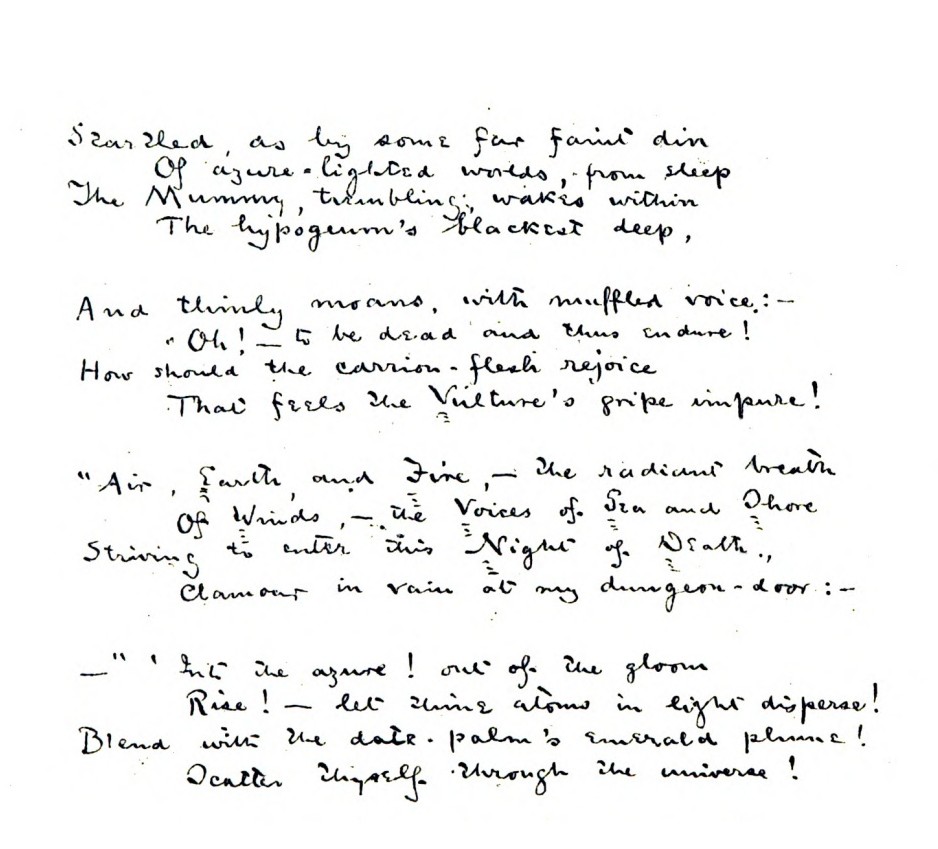 Startled, as by some far faint din
Of azure-lighted worlds, from sleep
The Mummy, trembling, wakes within
The hypogeum's blackest deep,
And thinly moans, with muffled voice:—
"Oh! — to be dead and thus endure!
How should the carrion-flesh rejoice
That feels the Vulture's gripe impure!
"Air, Earth, and Fire, — the radiant breath
Of Winds, — the Voices of Sea and Shore
Striving to enter this Night of Death,
Clamour in vain at my dungeon-door:—
—" ' Into the azure! out of the gloom
Rise! — let thine atoms in light disperse!
Blend with the date-palm's emerald plume!
Scatter thyself through the universe!